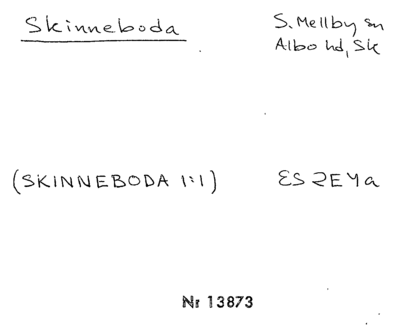 Skinneboda
S. Mellby sn
Albo hd, Sk
(SKINNEBODA 1:1)
ES 2E4a
Nr 13873